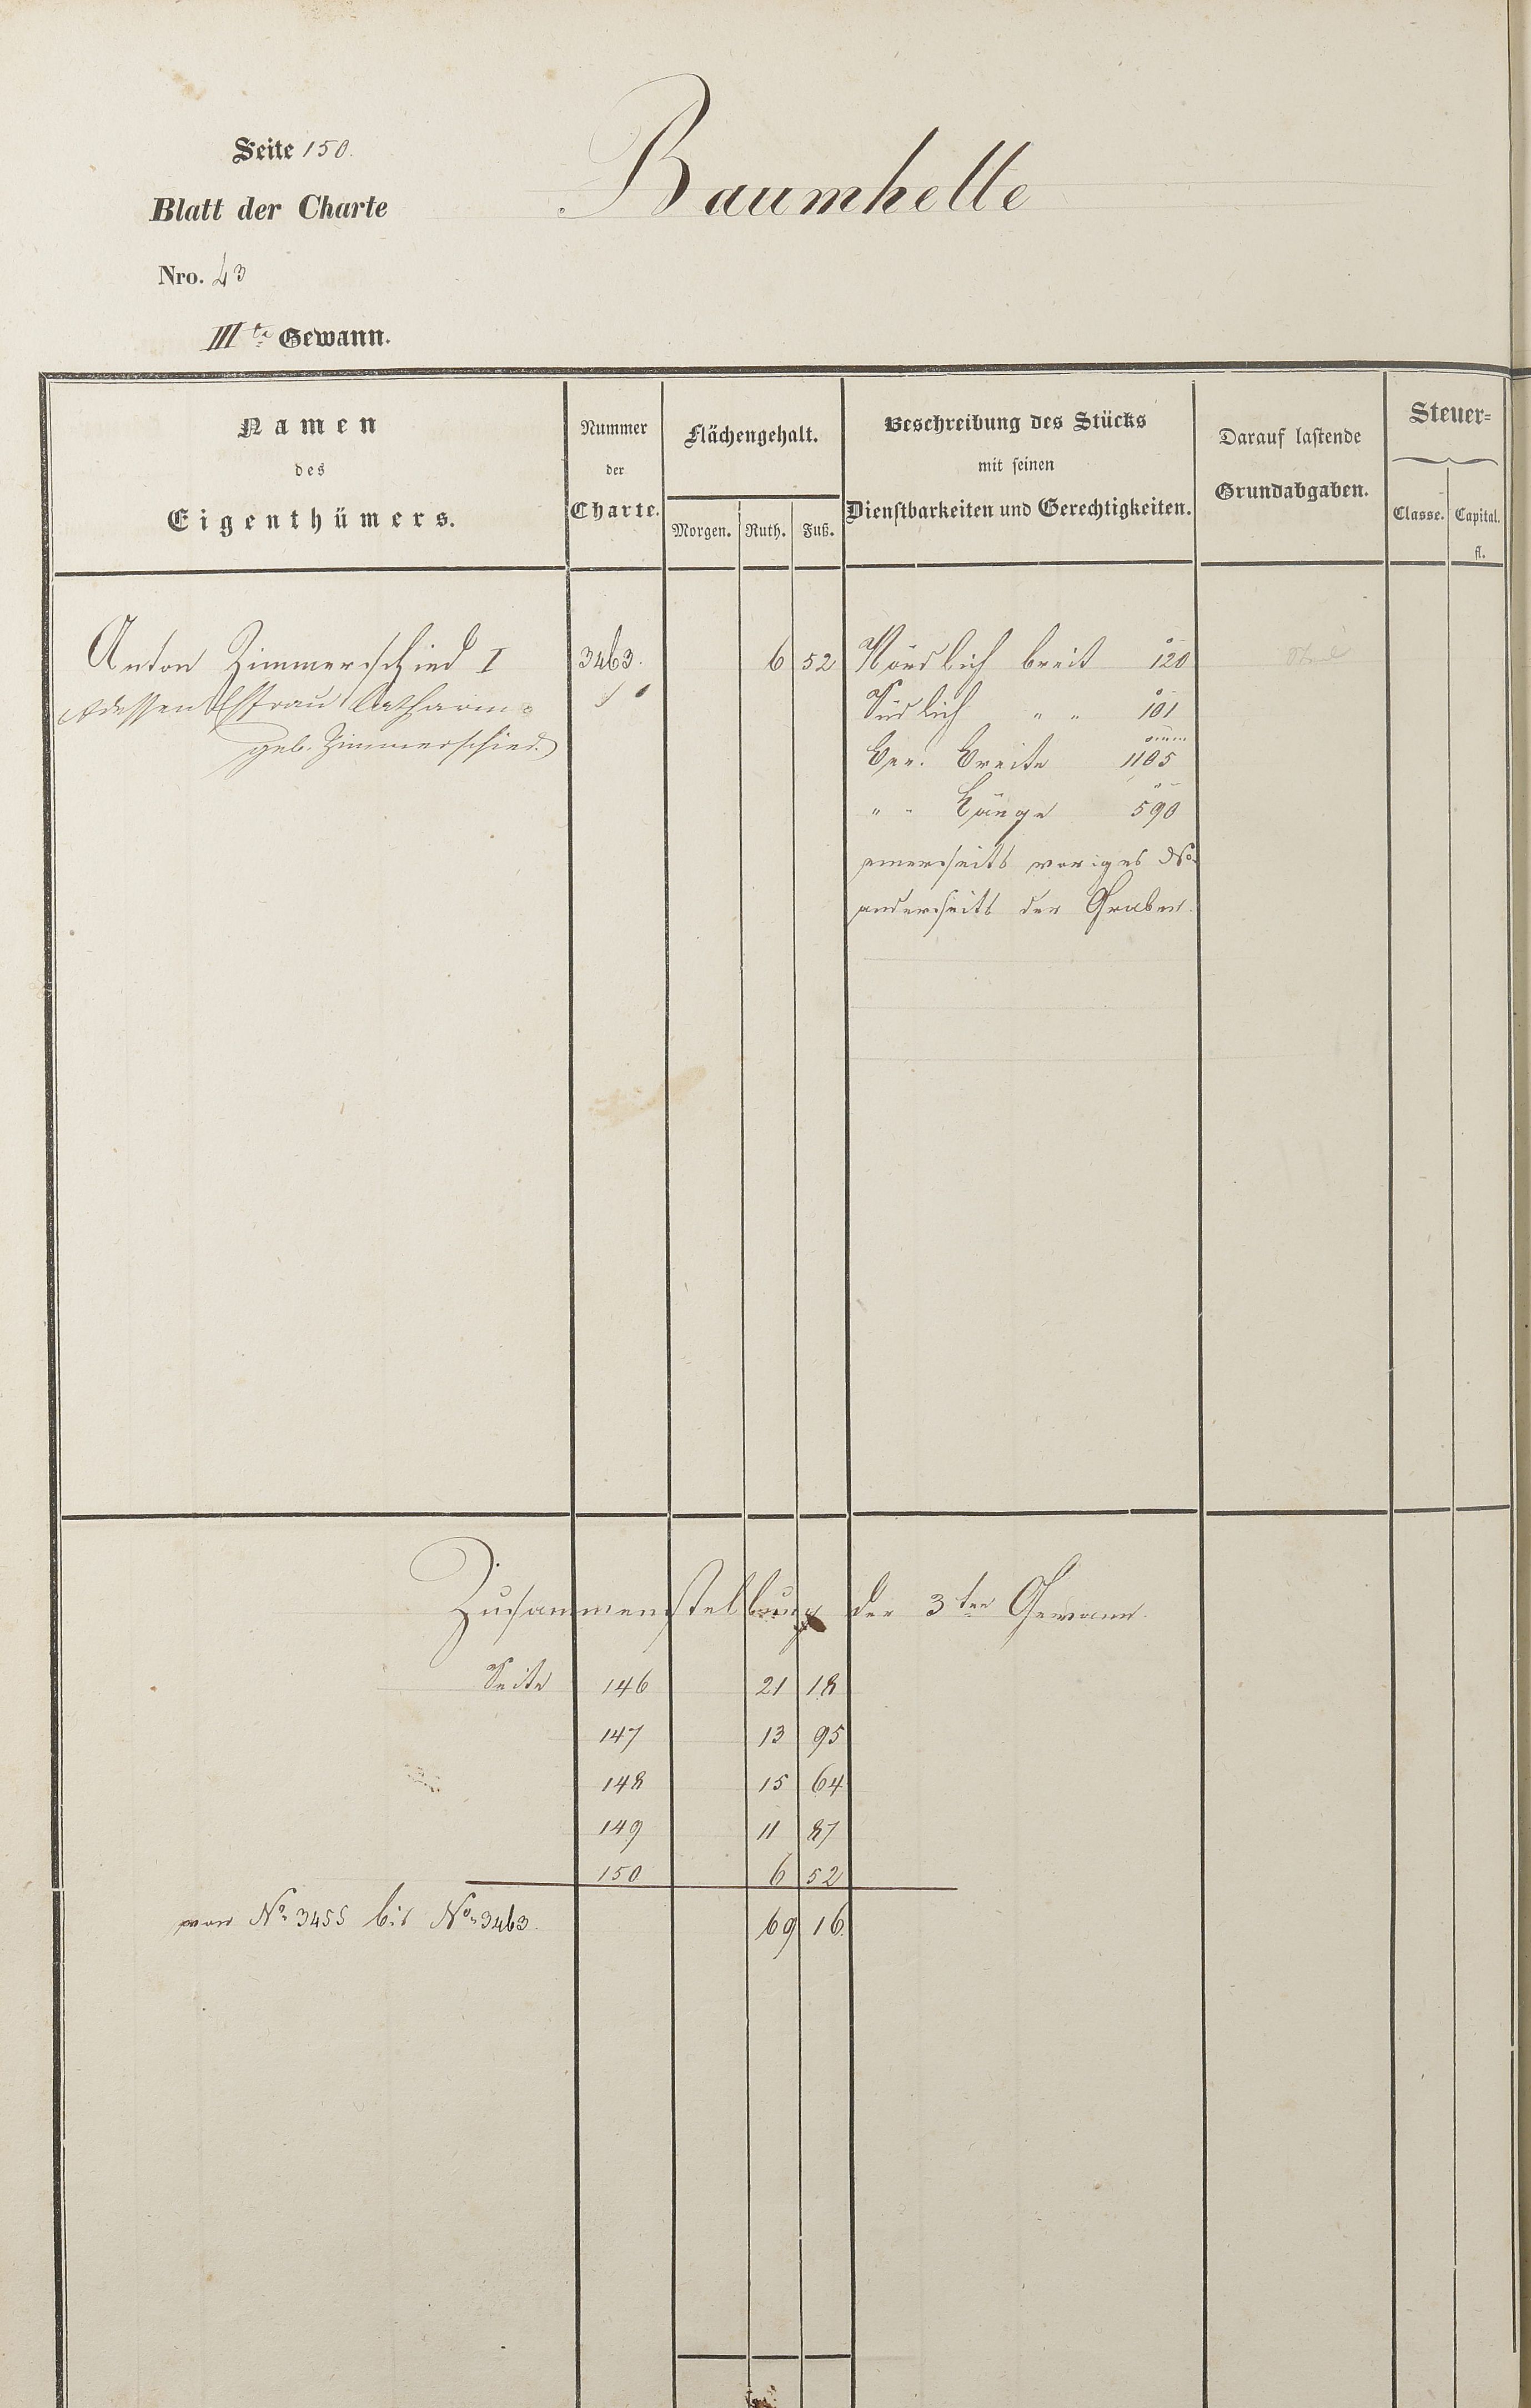 Seite 150.
Baumhelle
Blatt der Charte
Nro. 43
IIIte Gewann.
Namen des Eigenthümers.
Nummer der Charte.
Flächengehalt.
Morgen. Ruth. Fuß.
Beschreibung des Stücks
mit seinen
Dienstbarkeiten und Gerechtigkeiten.
Darauf lastende
Grundabgaben.
Steuer-
Classe. Capital.
fl.
Anton Zimmerschied I 3463. 6 52 Nördlich breit 120
dessen Ehfrau Catharina Südlich " " 101
geb. Zimmerschied Ber. Breite 1105
" " Länge 590
einerseits voriges No
anderseits der Graben.
Zusammenstellung der 3ten Gewann.
Seite 146 21 18
147 13 95
148 15 64
149 11 87
150 6 52
von No 3455 bis No 3463. 69 16.